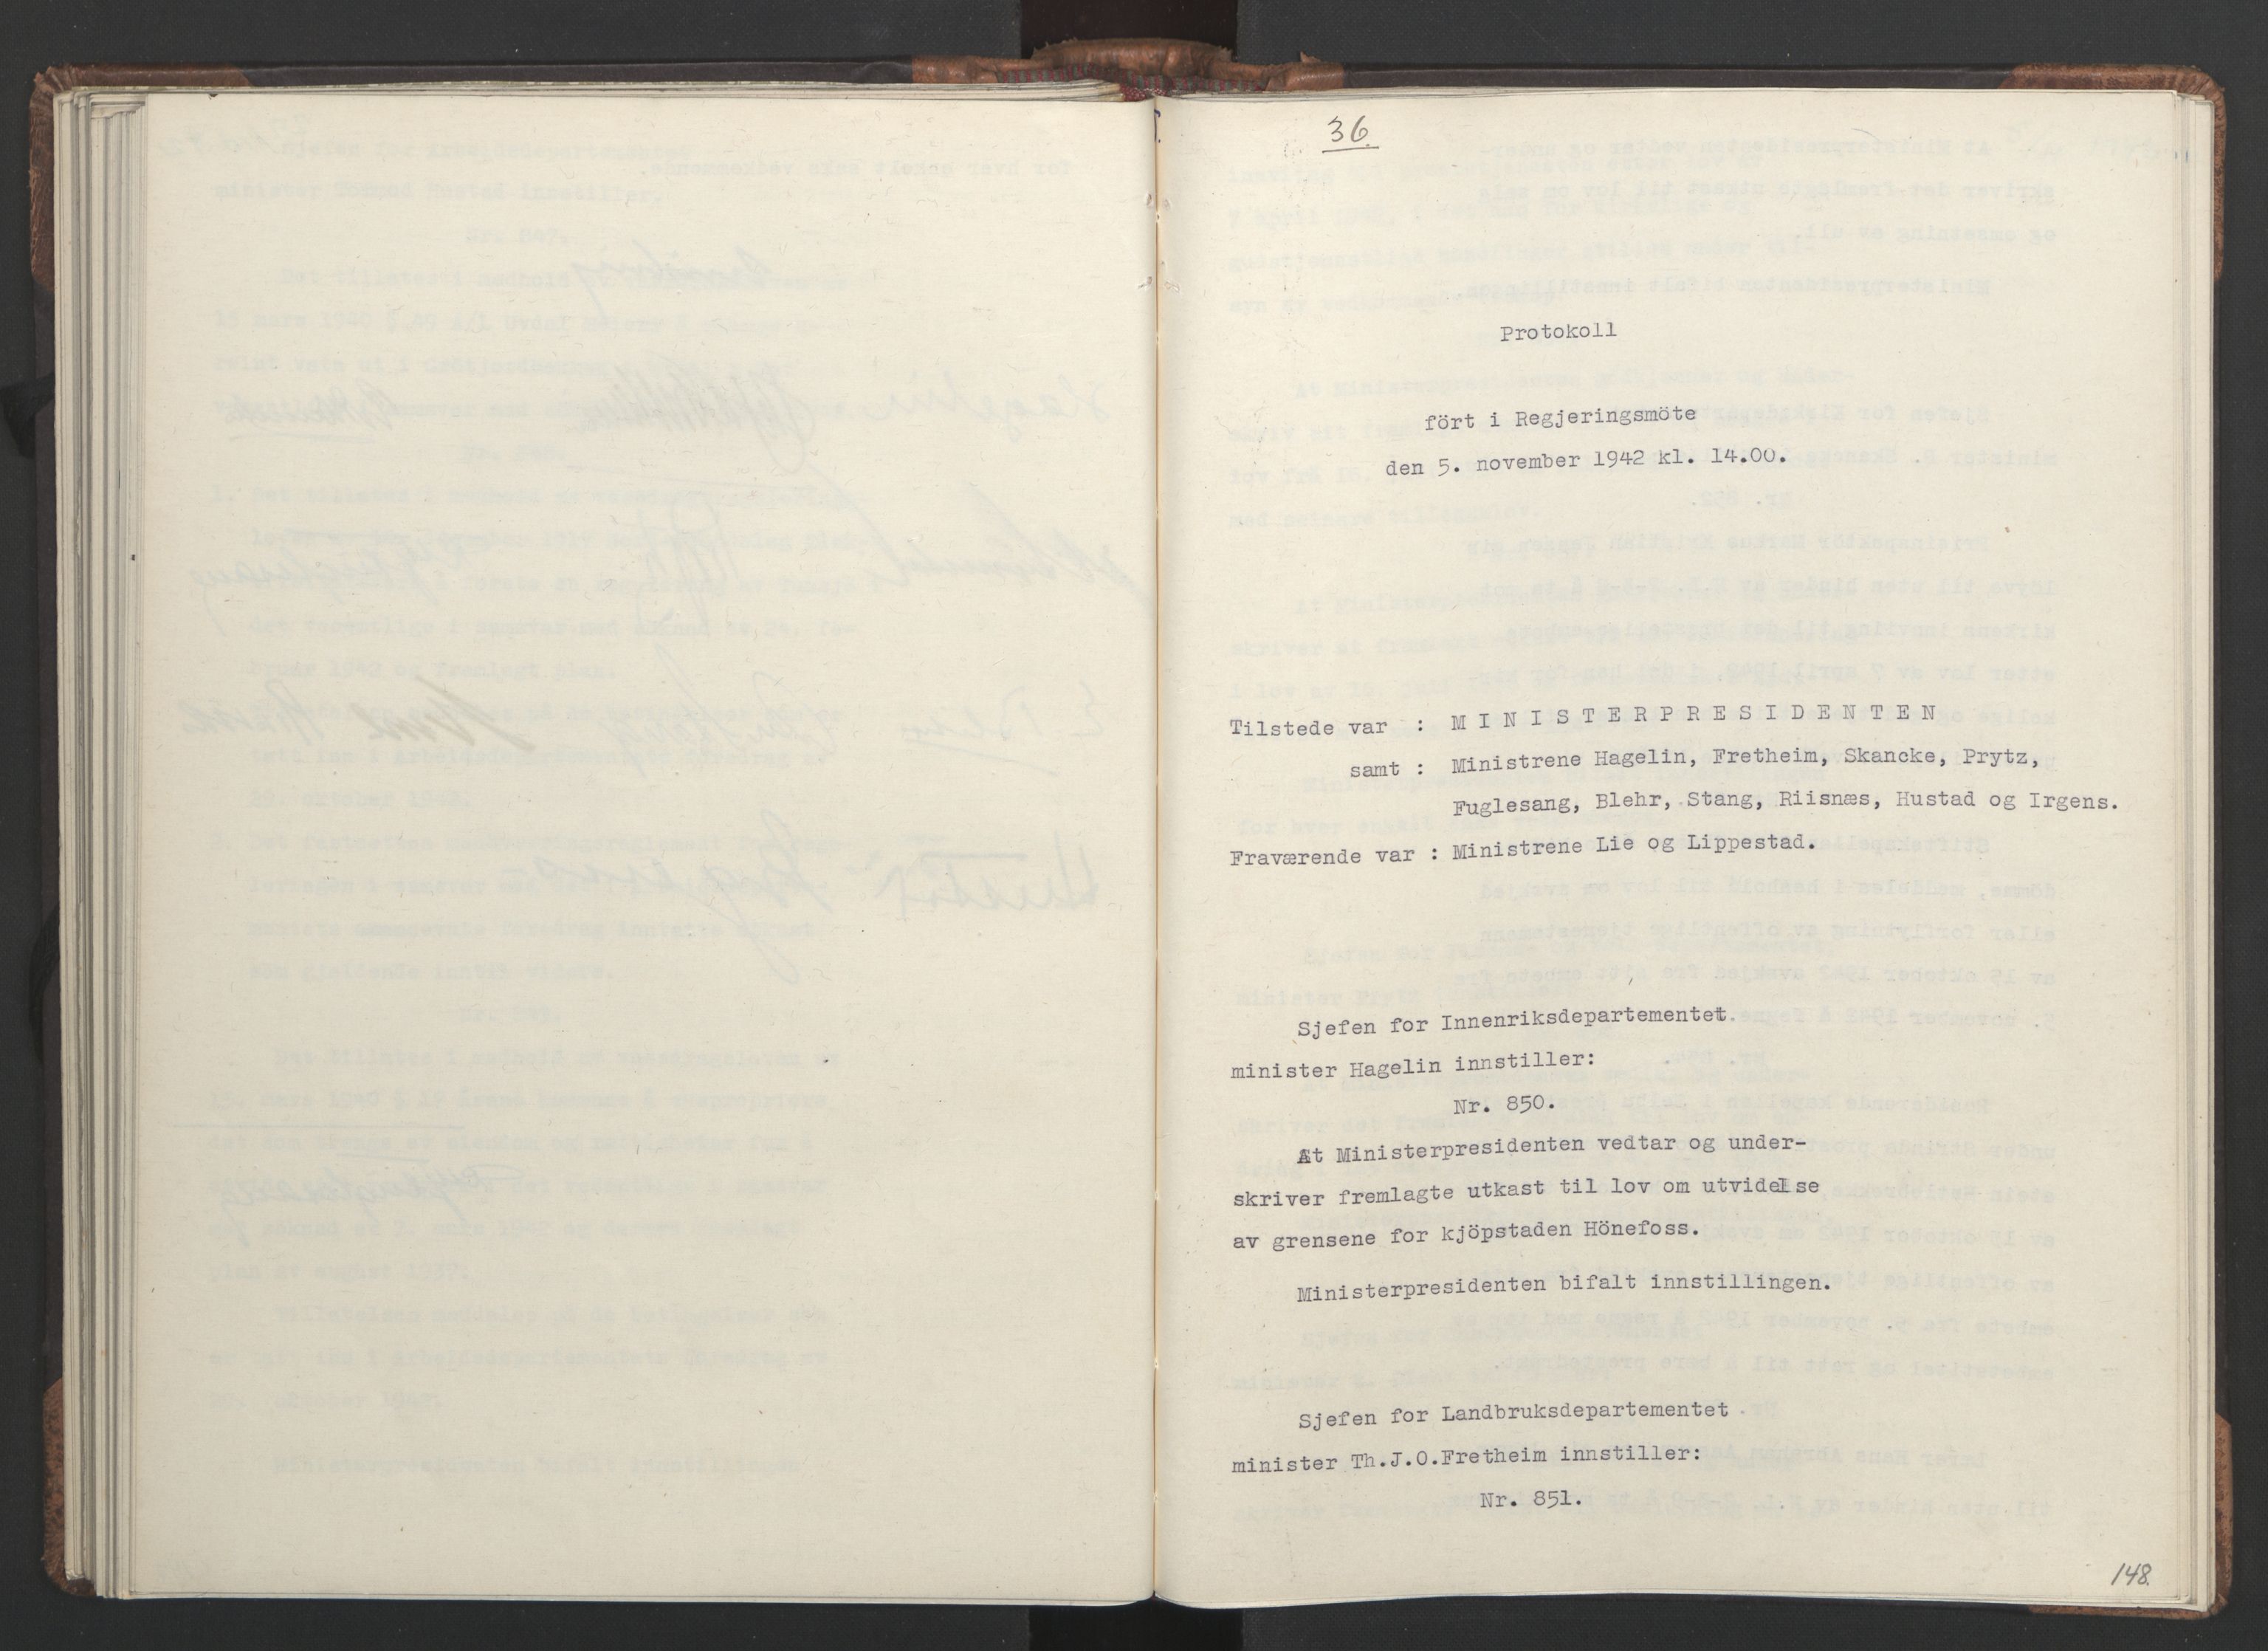 36.
Protokoll
fört i Regjeringsmöte
den 5. november 1942 kl. 14.00.
Tilstede var : MINISTERPRESIDENTEN
samt : Ministrene Hagelin, Fretheim, Skancke, Prytz,
Fuglesang, Blehr, Stang, Riisnæs, Hustad og Irgens.
Fraværende var : Ministrene Lie og Lippestad.
Sjefen for Innenriksdepartementet
minister Hagelin innstiller:
Nr. 850.
At Ministerpresidenten vedtar og under-
skriver fremlagte utkast til lov om utvidelse
av grensene for kjöpstaden Hönefoss.
Ministerpresidenten bifalt innstillingen.
Sjefen for Landbruksdepartementet
minister Th.J.O.Fretheim innstiller:
Nr. 851.
148.